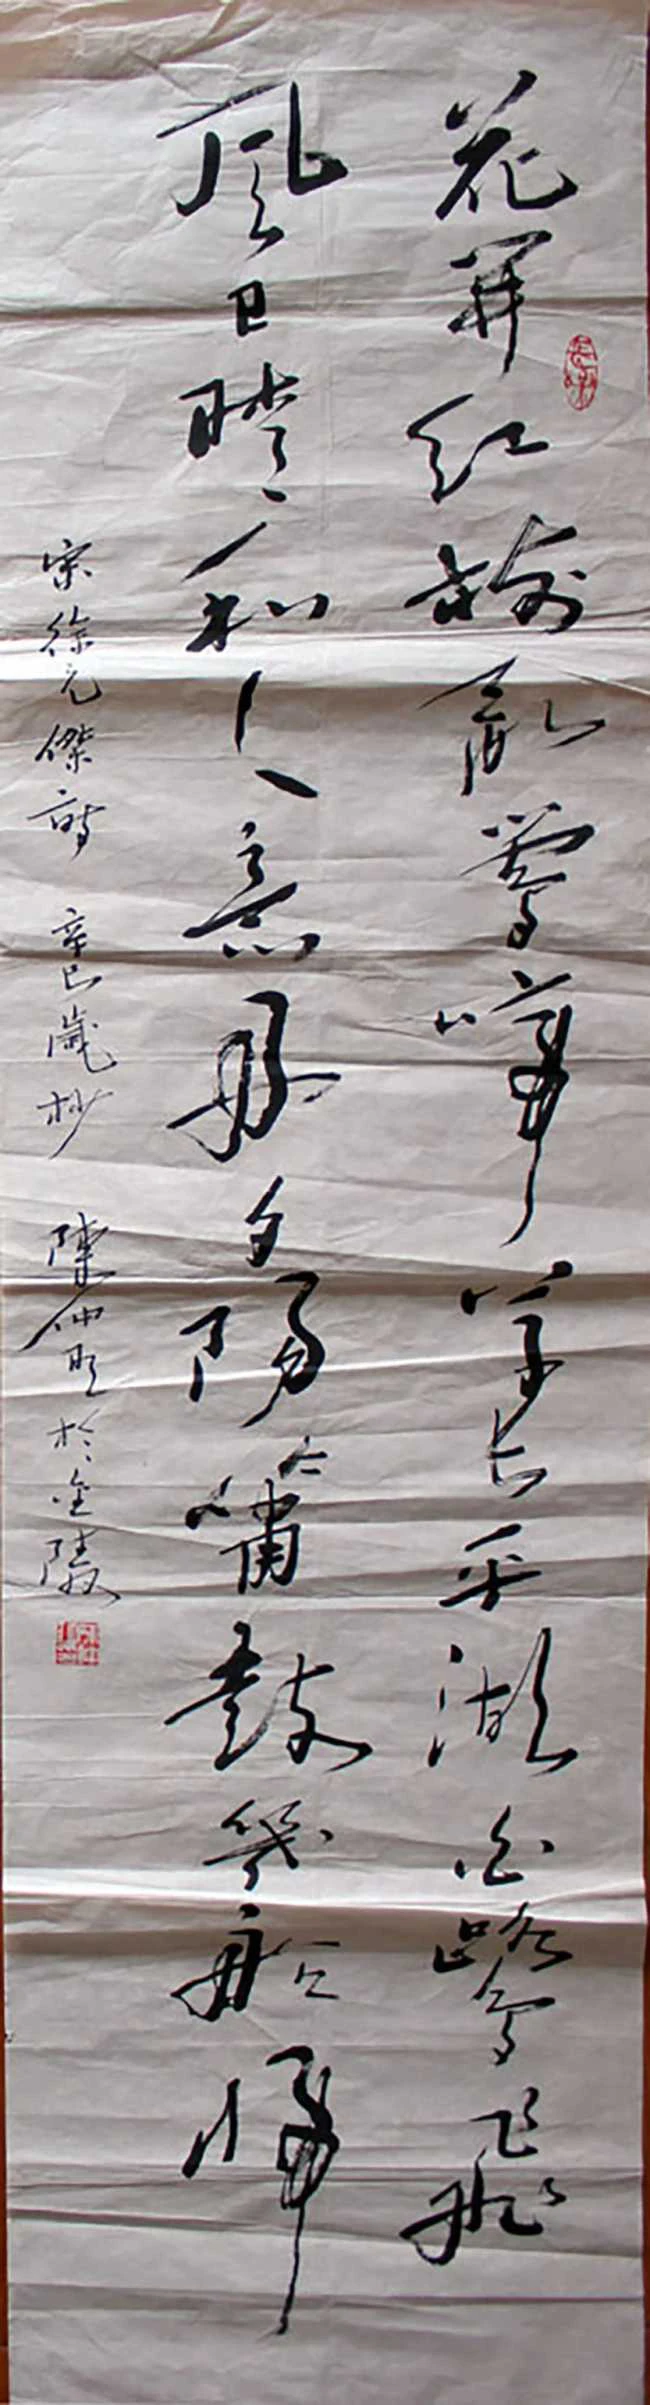 花開紅樹亂鶯啼草長平湖白鷺飛
風日晴和人意好夕陽簫鼓幾船歸
宋徐元傑詩 辛巳歲杪 陳仲明於金陵